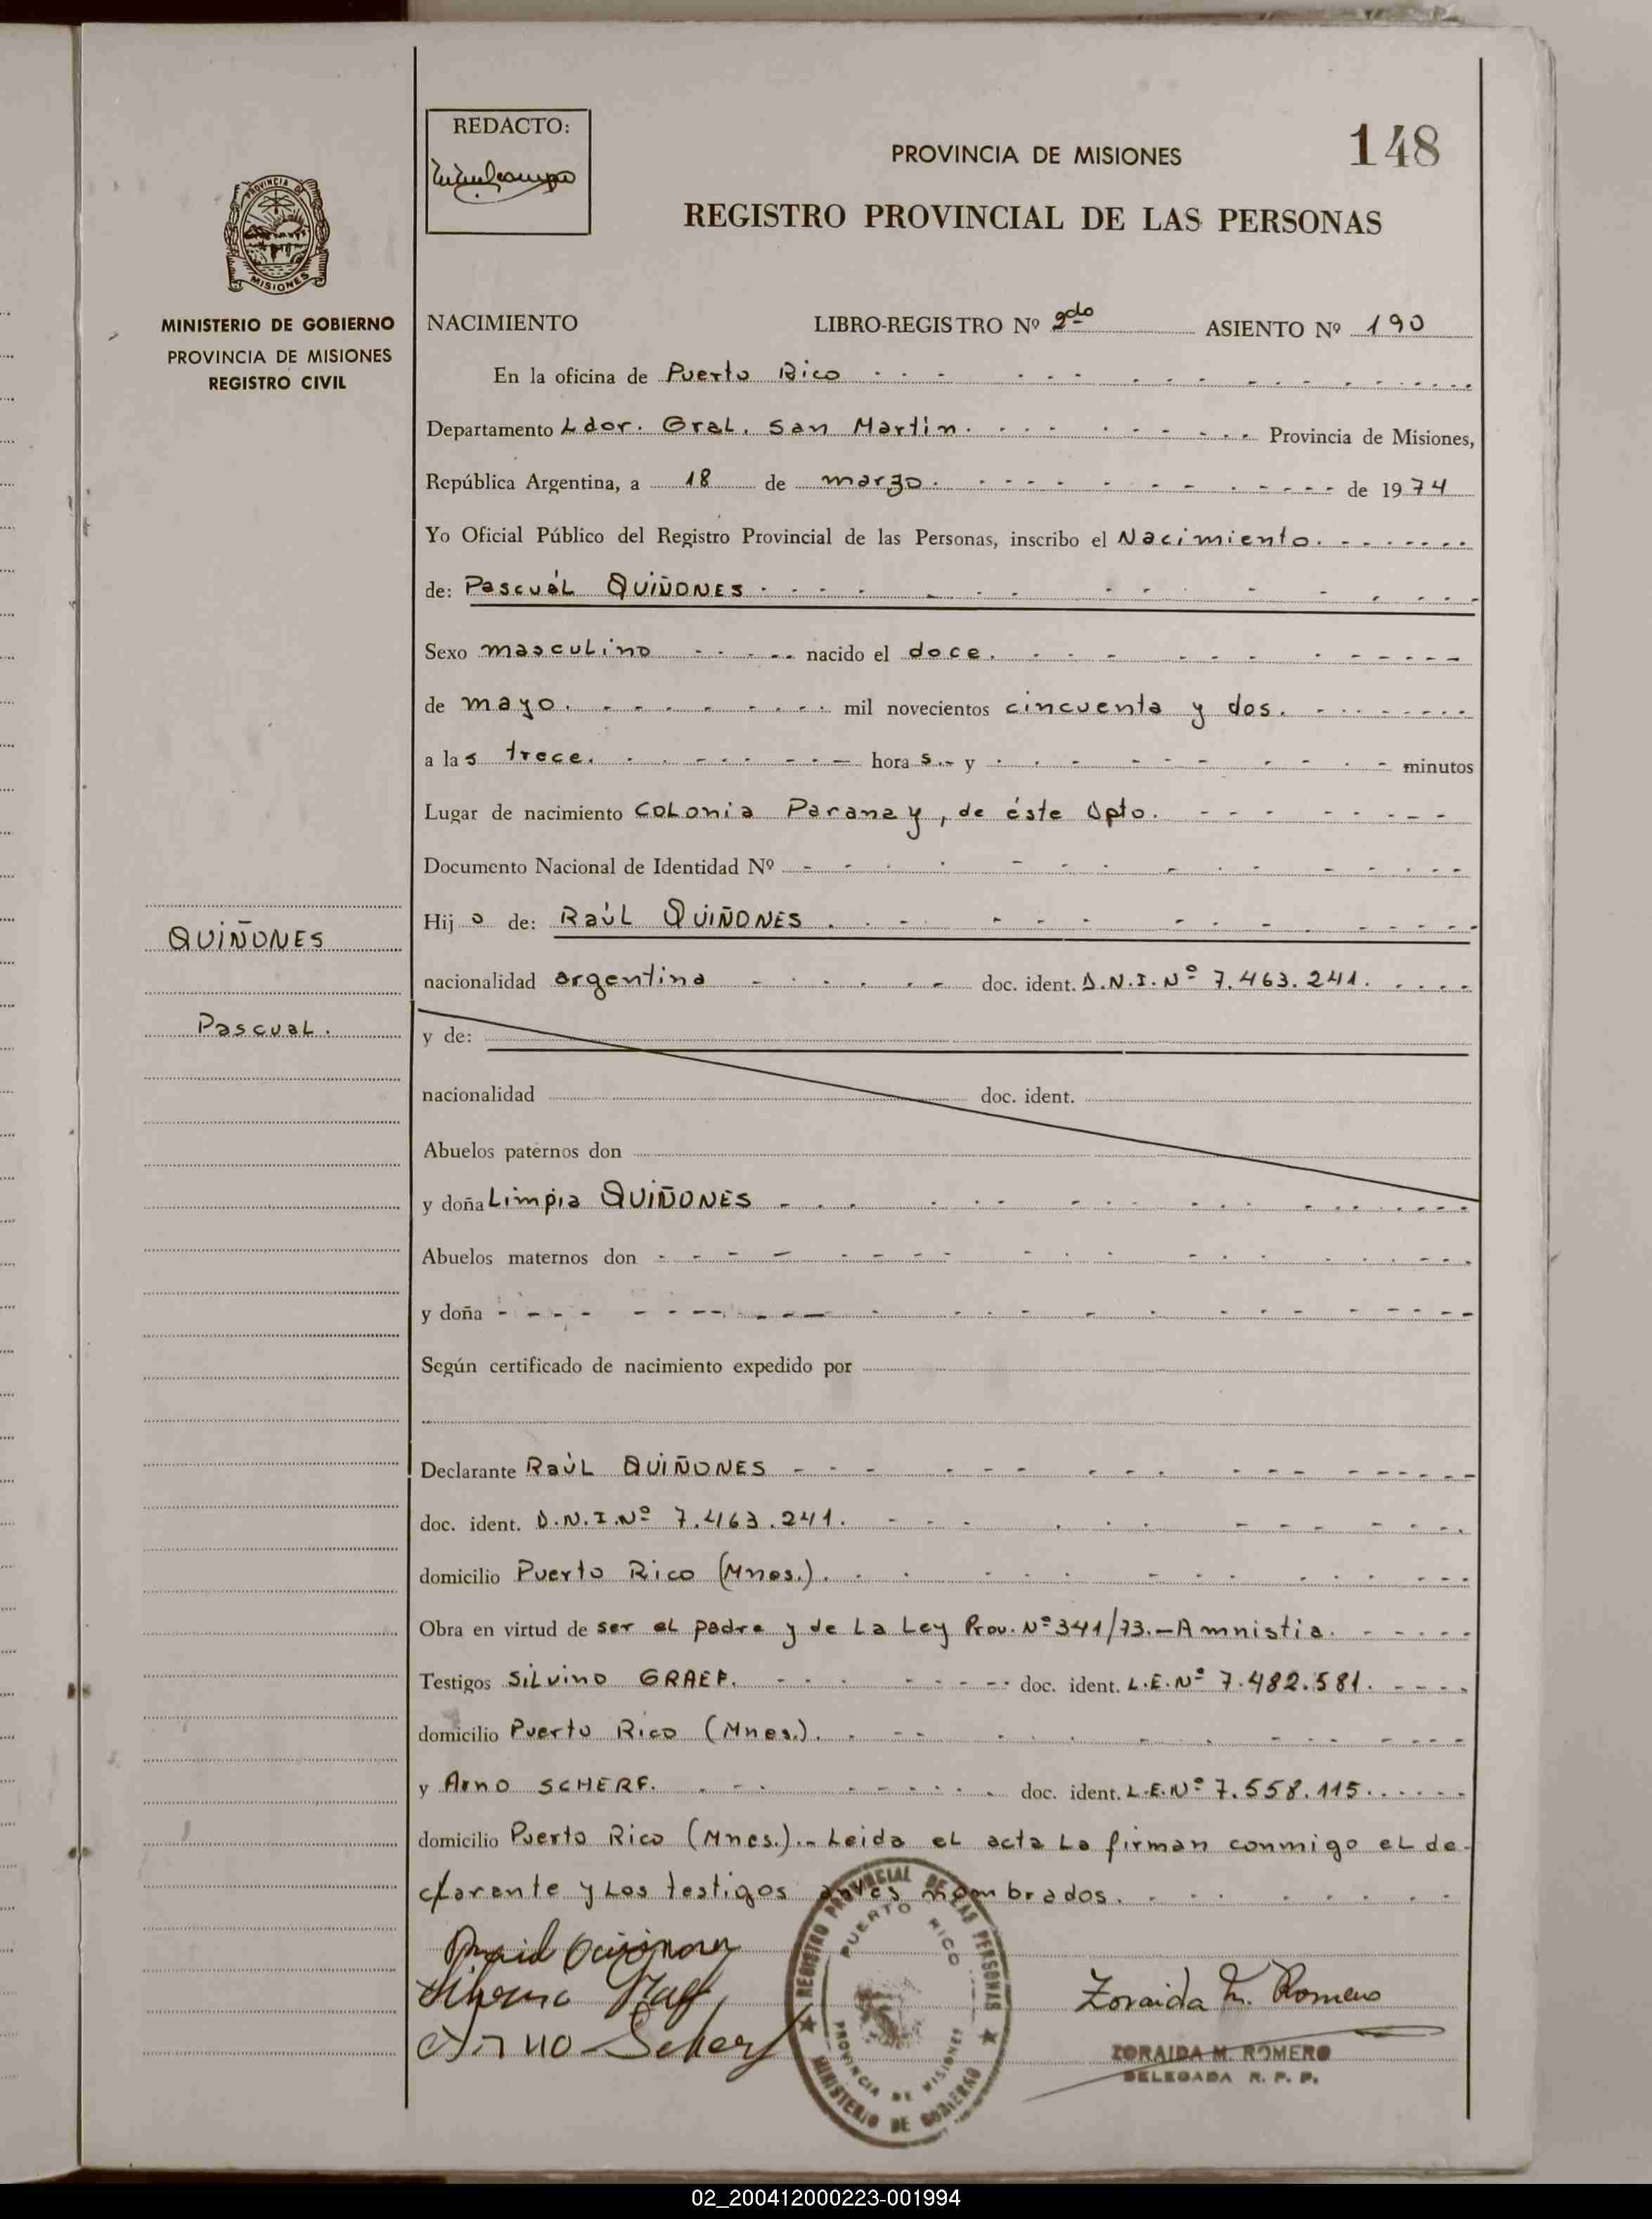 REDACTO:
148
PROVINCIA DE MISIONES
REGISTRO PROVINCIAL DE LAS PERSONAS
PROVINCIA DE
MISIONES
MINISTERIO DE GOBIERNO
PROVINCIA DE MISIONES
REGISTRO CIVIL
NACIMIENTO LIBRO-REGISTRO Nº 2do ASIENTO Nº 190
En la oficina de Puerto Rico
Departamento Ldor. Gral. San Martin. Provincia de Misiones,
República Argentina, a 18 de marzo. de 1974
Yo Oficial Público del Registro Provincial de las Personas, inscribo el Nacimiento.
de: Pascuál QUIÑONES
Sexo masculino nacido el doce.
de mayo. mil novecientos cincuenta y dos.
a las trece. horas.- y minutos
Lugar de nacimiento Colonia Paranay, de éste Dpto.
Documento Nacional de Identidad Nº
QUIÑONES
Pascual.
Hijo de: Raúl QUIÑONES.
nacionalidad argentina doc. ident. D.N.I. Nº 7.463.241.
y de:
nacionalidad doc. ident.
Abuelos paternos don
y doña Limpia QUIÑONES
Abuelos maternos don
y doña
Según certificado de nacimiento expedido por
Declarante Raúl QUIÑONES
doc. ident. D.N.I. Nº 7.463.241.
domicilio Puerto Rico (Mnes.).
Obra en virtud de ser el padre y de la Ley Prov. Nº 341/73.- Amnistia.
Testigos Silvino GRAEF. doc. ident. L.E. Nº 7.482.581.
domicilio Puerto Rico (Mnes.).
y Arno SCHERF. doc. ident. L.E. Nº 7.558.115.
domicilio Puerto Rico (Mnes.).- Leida el acta la firman conmigo el de-
clarante y los testigos antes nombrados.
Arno Scherf
REGISTRO PROVINCIAL DE LAS PERSONAS
PUERTO RICO
PROVINCIA DE MISIONES
MINISTERIO DE GOBIERNO
Zoraida M. Romero
ZORAIDA M. ROMERO
DELEGADA R. P. P.
02_200412000223-001994